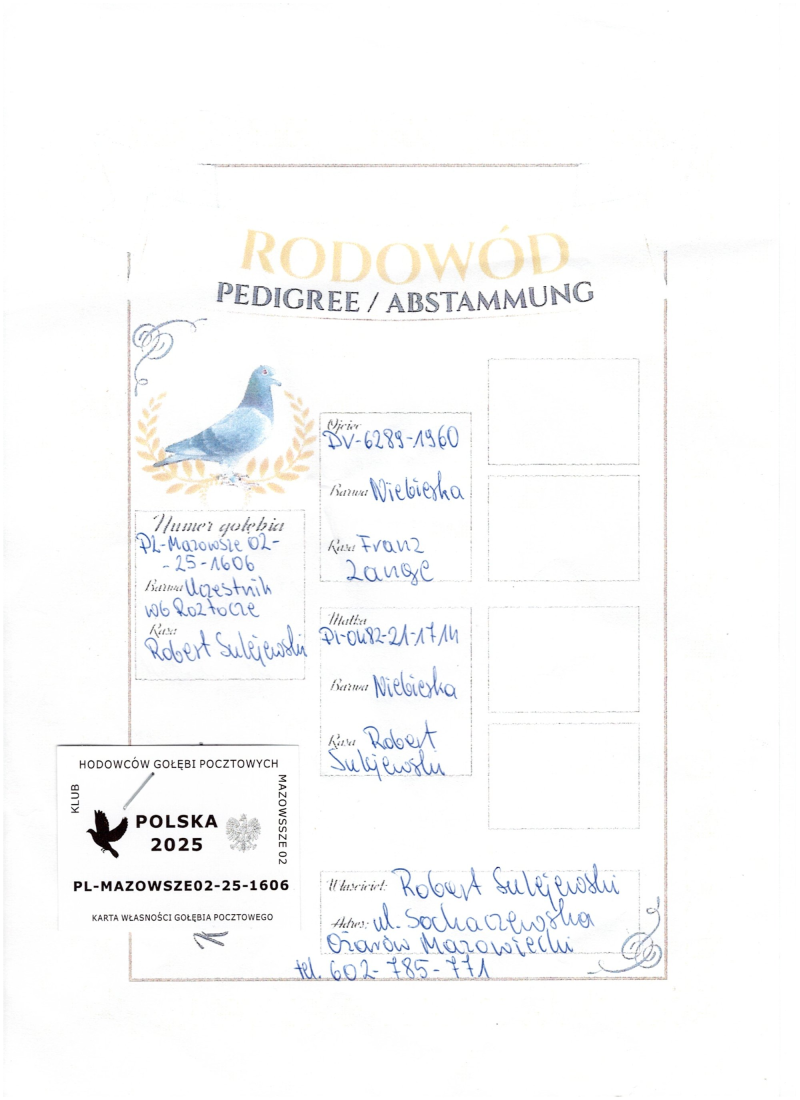 RODOWÓD
PEDIGREE / ABSTAMMUNG
Numer gołębia
PL-Mazowsze 02-
-25-1606
Barwa Uczestnik
wG Roztocze
Rasa
Robert Sulejewski
Ojciec
DV-6289-1960
Barwa Niebieska
Rasa Franz
Zange
Matka
Pl-0482-21-1714
Barwa Niebieska
Rasa Robert
Sulejewski
HODOWCÓW GOŁĘBI POCZTOWYCH
KLUB
MAZOWSSZE 02
POLSKA
2025
PL-MAZOWSZE02-25-1606
KARTA WŁASNOŚCI GOŁĘBIA POCZTOWEGO
Właściciel: Robert Sulejewski
Adres: ul. Sochaczewska
Ożarów Mazowiecki
tel. 602-785-771